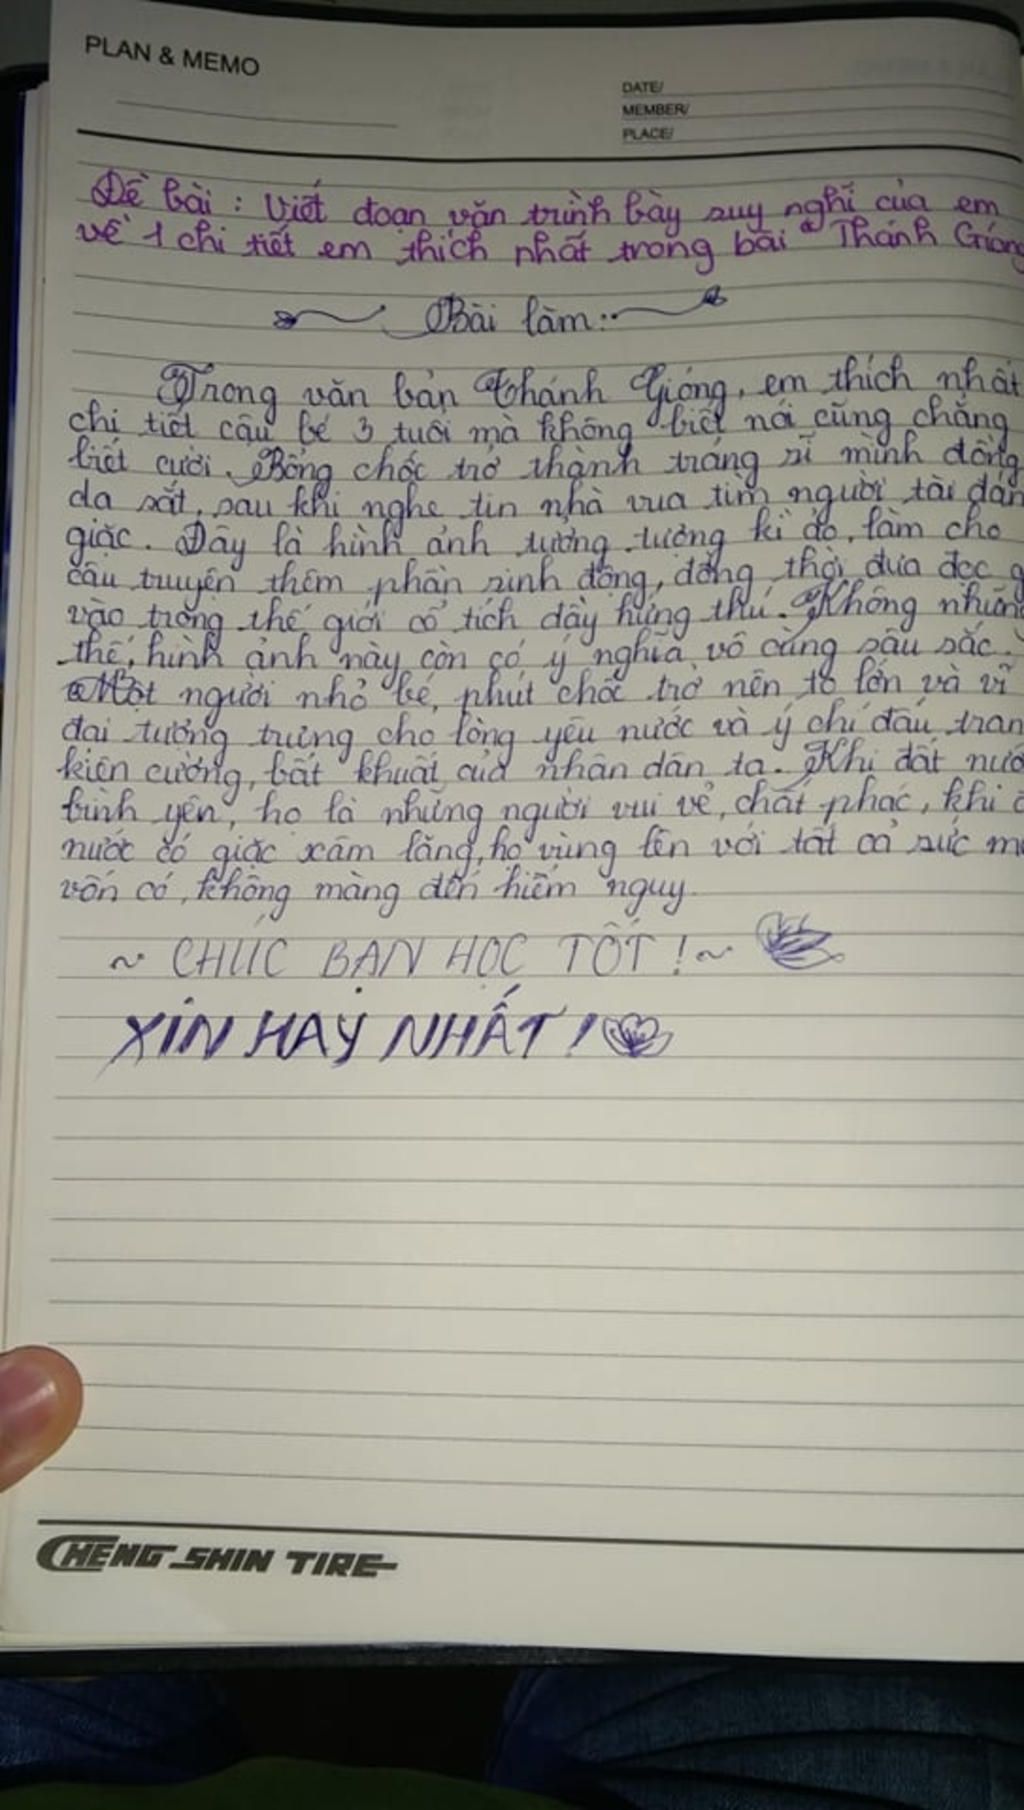 PLAN & MEMO
DATE/
MEMBER/
PLACE/
Đề bài : Viết đoạn văn trình bày suy nghĩ của em
về 1 chi tiết em thích nhất trong bài "Thánh Gióng
Bài làm:
Trong văn bản Thánh Gióng, em thích nhất
chi tiết cậu bé 3 tuổi mà không biết nói cũng chẳng
biết cười. Bỗng chốc trở thành tráng sĩ mình đồng
da sắt, sau khi nghe tin nhà vua tìm người tài đán
giặc. Đây là hình ảnh tưởng tượng kì ảo, làm cho
câu truyện thêm phần sinh động, đồng thời đưa đọc g
vào trong thế giới cổ tích đầy hứng thú. Không nhữn
thế, hình ảnh này còn có ý nghĩa vô cùng sâu sắc.
Một người nhỏ bé, phút chốc trở nên to lớn và vĩ
đại tượng trưng cho lòng yêu nước và ý chí đấu tran
kiên cường, bất khuất của nhân dân ta. Khi đất nướ
bình yên, họ là những người vui vẻ, chất phác, khi đ
nước có giặc xâm lăng, họ vùng lên với tất cả sức mạ
vốn có, không màng đến hiểm nguy.
~ CHÚC BẠN HỌC TỐT ! ~
XIN HAY NHẤT !
CHENG SHIN TIRE